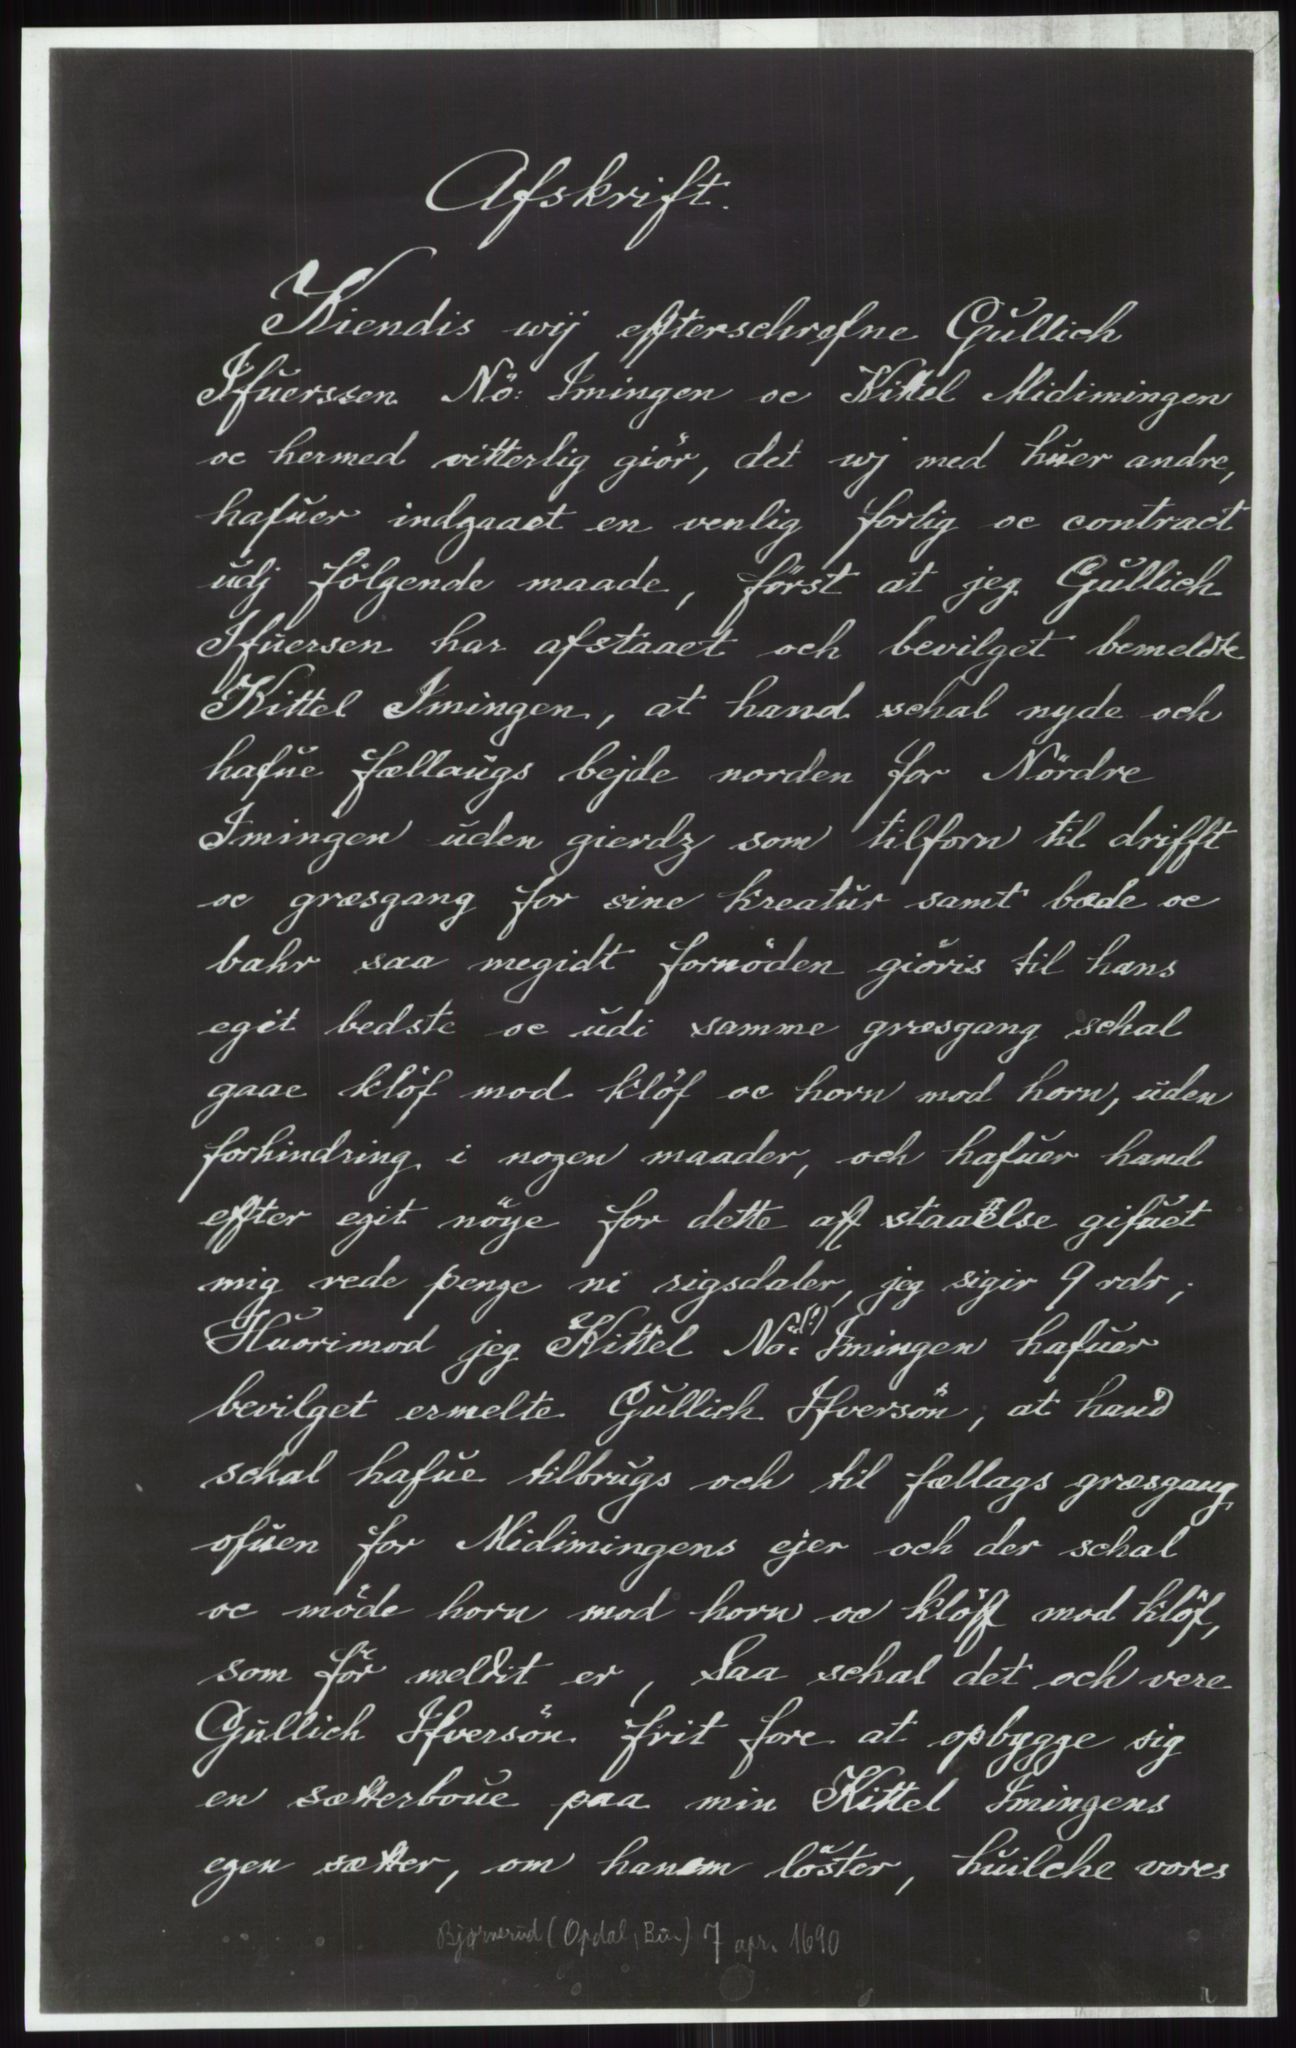 Afskrift.
Kiendis wij efterschrefne Gŭllich
Ifŭerssen Nö: Imingen oc Kittel Midimingen
oc hermed vitterlig giör, det wj med hŭer andre,
hafŭer indgaaet en venlig forlig oc contract
ŭdj fölgende maade, først at jeg Gŭllich
Ifŭersen har afstaaet och bevilget bemeldte
Kittel Imingen, at hand schal nyde och
hafŭe fællaŭgs bejde norden for Nördre
Imingen ŭden gierdz som tilforn til drifft
oc græsgang for sine kreatŭr samt bæde oc
bahr saa megidt fornöden giöris til hans
egit bedste oc ŭdi samme græsgang schal
gaae klöf mod klöf oc horn mod horn, ŭden
forhindring i nogen maader, och hafŭer hand
efter egit nöye for dette aff staaelse gifŭet
mig rede penge ni rigsdaler, jeg sigir 9 rdr,;
Hŭorimod jeg Kittel No:(?) Imingen hafŭer
bevilget ermelte Gŭllich Ifversön, at hand
schal hafŭe tilbrŭgs och til fællags græsgang
ofŭen for Midimingens ejer och der schal
oc möde horn mod horn oc klöff mod klöf,
som för meldit er, Saa schal det och vere
Gŭllich Ifversön frit fore at opbygge sig
en sætterboŭe paa min Kittel Imingens
egen sætter, om hanem löster, hŭilche vores
Bjørnerud (Opdal, Bu.) 7 apr. 1690